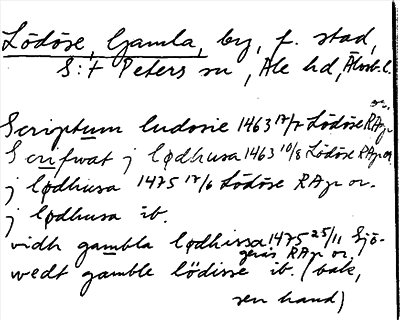 Lödöse, Gamla, by, f. stad,
S:t Peters sn, Ale hd, Älvsb. l.
or.
Scriptum ludosie 1463 17/7 Lödöse RAp
Scrifwat j lødhusa 1463 10/8 Lödöse RAp or.
j lødhusa 1475 17/6 Lödöse RAp or.
j lødhusa ib.
vidh gambla lødhissa 1475 25/11 Sjö-
gerås RAp or.
wedt gamble lödisse ib. (bak,
sen hand)